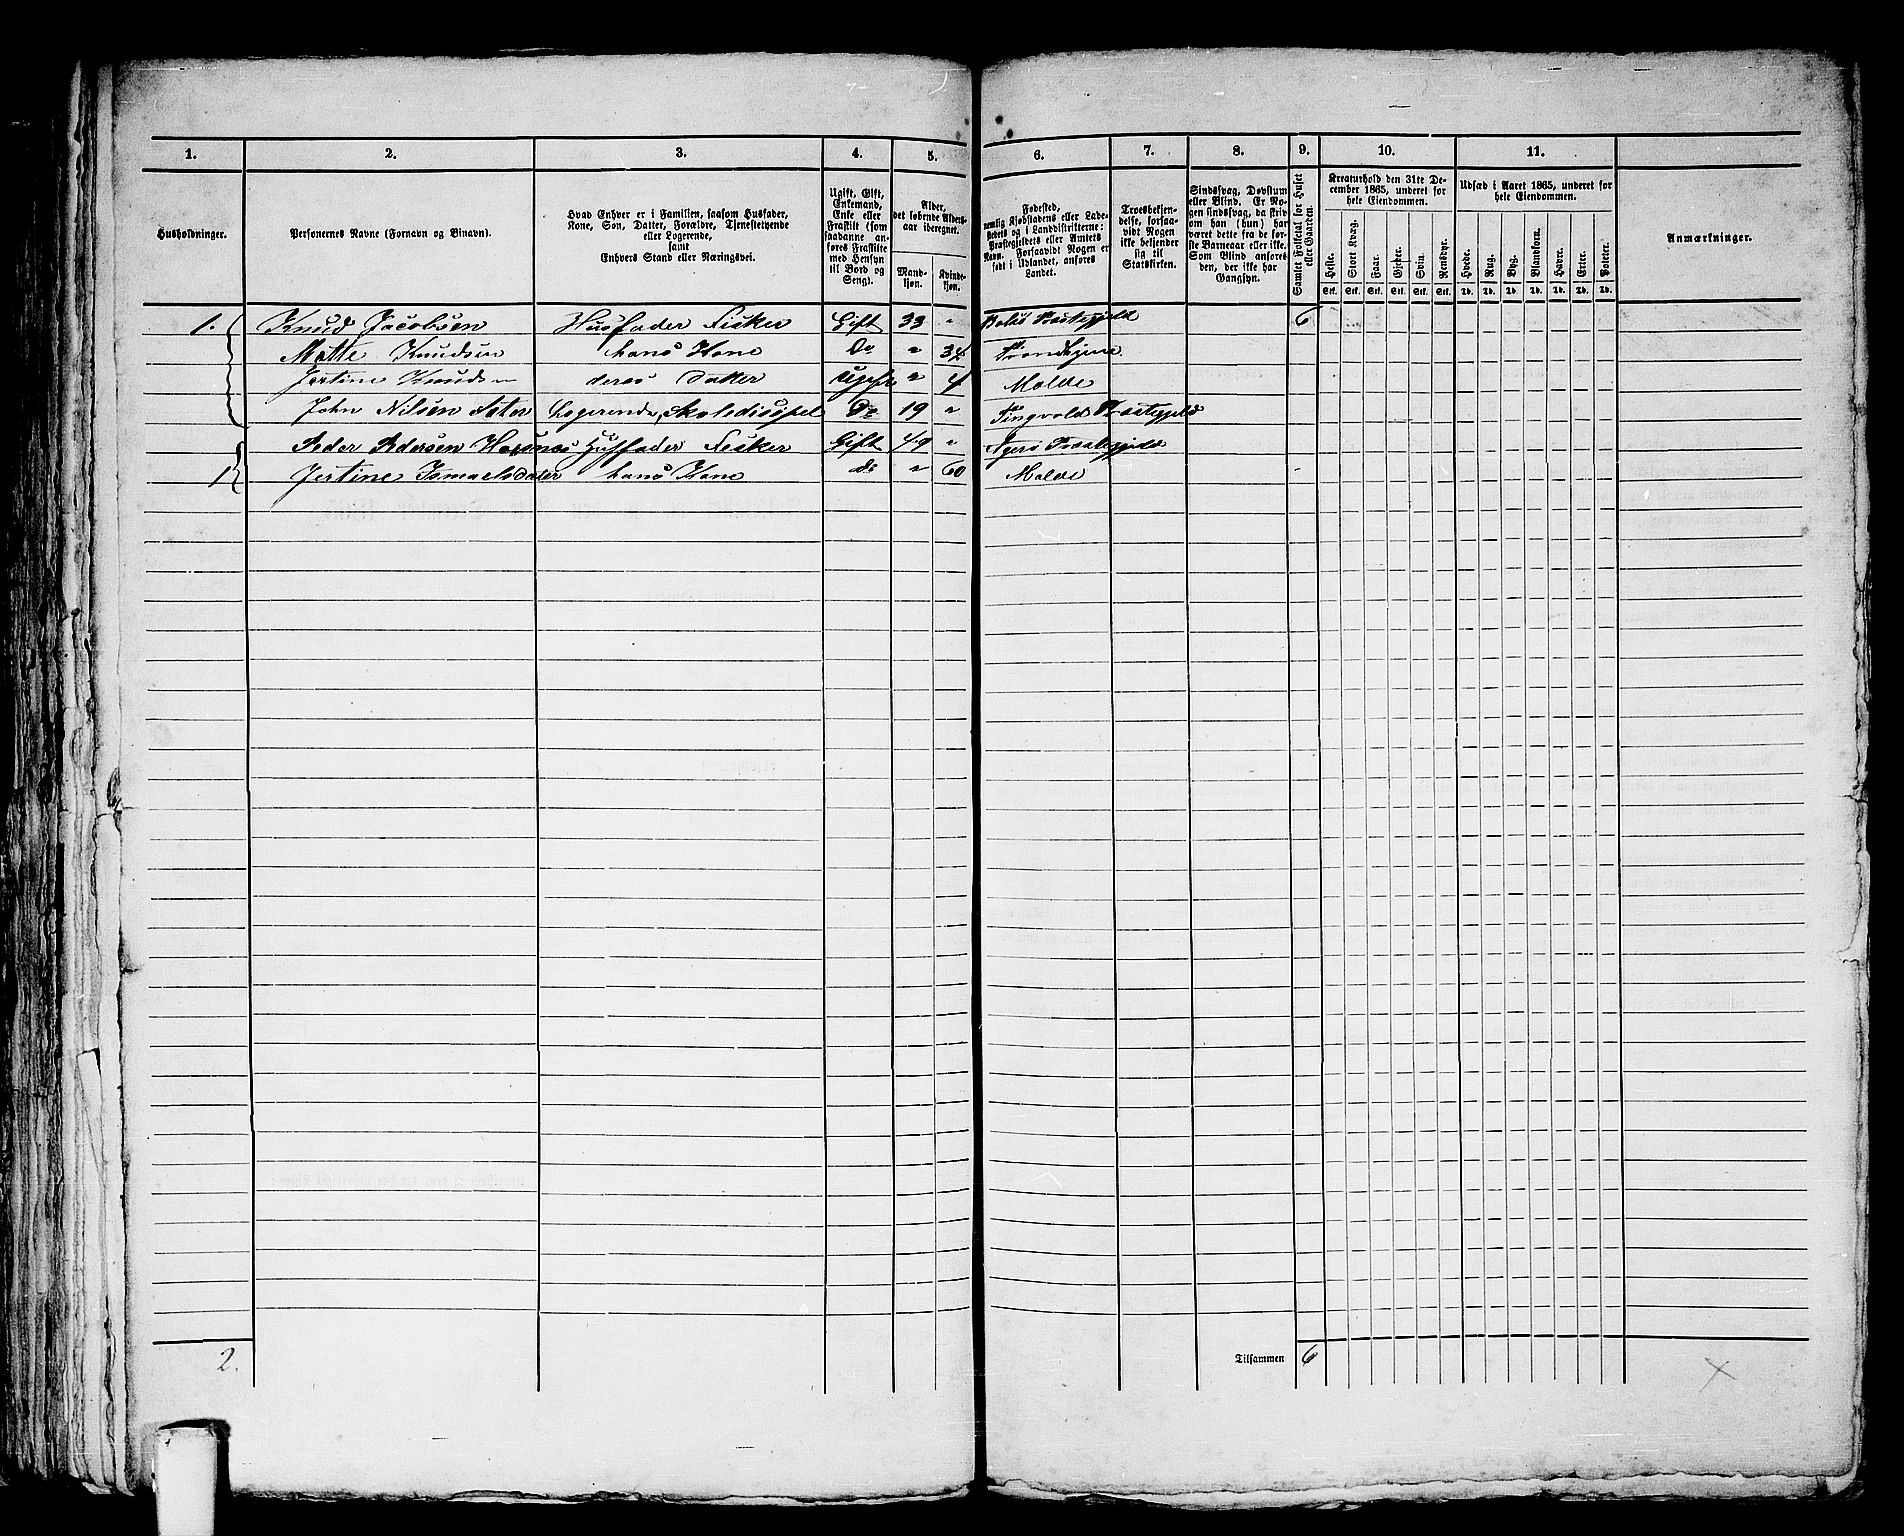 1. 2. 3. 4. 5. 6. 7. 8. 9. 10. 11.
Husholdninger.
Personernes Navne (Fornavn og Binavn).
Hvad Enhver er i Familien, saasom Husfader,
Kone, Søn, Datter, Forældre, Tjenestetyende
eller Logerende,
samt
Enhvers Stand eller Næringsvei.
Ugift, Gift,
Enkemand,
Enke eller
Fraskilt (som
saadanne an-
føres Fraskilte
med Hensyn
til Bord og
Seng).
Alder,
det løbende Alders-
aar iberegnet.
Mand-
kjøn.
Kvinde-
kjøn.
Fødested,
nemlig Kjøbstadens eller Lade-
stedets og i Landdistrikterne:
Præstegjeldets eller Amtets
Navn. Forsaavidt Nogen er
født i Udlandet, anføres
Landet.
Troesbekjen-
delse, forsaa-
vidt Nogen
ikke bekjender
sig til
Statskirken.
Sindssvag, Døvstum
eller Blind. Er No-
gen sindssvag, da skriv
om han (hun) har
været dette fra de før-
ste Barneaar eller ikke.
Som Blind anføres
den, der ikke har
Gangsyn.
Samlet Folketal for Huset
eller Gaarden.
Kreaturhold den 31te De-
cember 1865, underet for
hele Eiendommen.
Heste. Stort Kvæg. Faar. Gjeder. Svin. Rensdyr.
Stk. Stk. Stk. Stk. Stk. Stk.
Udsæd i Aaret 1865, underet for
hele Eiendommen.
Hvede. Rug. Byg. Blandkorn. Havre. Erter. Poteter.
Td. Td. Td. Td. Td. Td. Td.
Anmærkninger.
1. Knud Jacobsen Husfader Fisker Gift 33 " Bolsö Præstegjeld 6
Mette Knudsen hans Kone Do " 34 Trondhjem
Jertine Knudsen deres Dater Ugift " 4 Molde
John Nilsen Logerende, Skoledisipel Do 19 " Tingvolds Præstegjeld
1 Peder Pedersen Husfader Fisker Gift 49 " Agerö Præstegjeld
Jertine Ismaelsdater hans Kone do " 60 Molde
2. Tilsammen 6